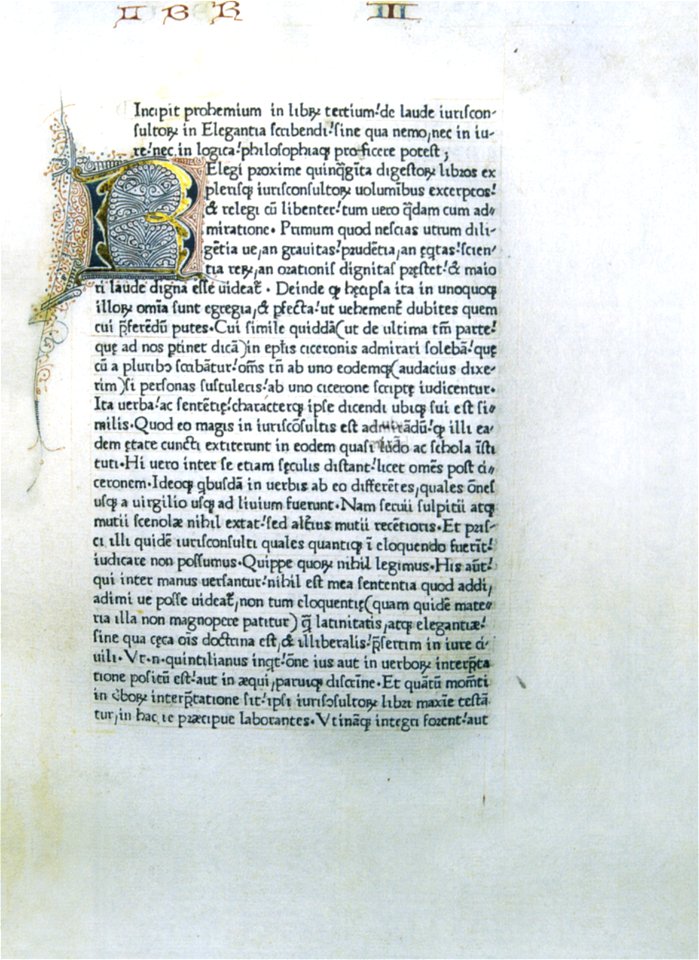 LIBER III
Incipit prohemium in libꝝ tertium: de laude iuriscon-
sultoꝝ in Elegantia scribendi: sine qua nemo, nec in iu-
re: nec in logica: philosophiaqꝫ proficere potest;
RElegi proxime quinq̃gĩta digestoꝝ libros ex
plerisqꝫ iurisconsultoꝝ uolumibus excerptos:
& relegi cũ libenter: tum uero q̃dam cum ad-
miratione. Primum quod nescias utrum dili-
gẽtia ue, an grauitas: prudẽtia, an eq̃tas: scien-
tia reꝝ, an orationis dignitas pręstet: & maio
ri laude digna esse uideat̃. Deinde ꝙ hęc ipsa ita in unoquoqꝫ
illoꝝ omĩa sunt egregia, & ꝑfecta: ut uehement̃ dubites quem
cui p̃ferẽdũ putes. Cui simile quiddã (ut de ultima tm̃ parte:
quę ad nos ꝑtinet dicã) in ep̃lis ciceronis admirari solebã: quę
cũ a pluribꝫ scribãtur: oms̃ tñ ab uno eodemqꝫ (audacius dixe-
rim) si personas sustuleris: ab uno cicerone scriptę iudicentur.
Ita uerba: ac sentẽtię: characterqꝫ ipse dicendi ubiqꝫ sui est si-
milis. Quod eo magis in iuriscõsultis est admirãdũ: ꝙ illi ea-
dem ętate cuncti extiterunt in eodem quasi ludo ac schola ĩsti
tuti. Hi uero inter se etiam sęculis distant: licet omẽs post ci-
ceronem. Ideoqꝫ q̃busdã in uerbis ab eo differẽtes, quales õnes
usqꝫ a uirgilio usqꝫ ad liuium fuerunt. Nam seruii sulpitii atqꝫ
mutii scenolæ nihil extat: sed alt̃ius mutii recẽtioris. Et pris-
ci illi quidẽ iurisconsulti quales quantiqꝫ ĩ eloquendo fuerĩt:
iudicare non possumus. Quippe quoꝝ nihil legimus. His aũt:
qui inter manus uersantur: nihil est mea sententia quod addi,
adimi ue posse uideat̃, non tum eloquentię (quam quidẽ mate-
ria illa non magnopere patitur) q̃ latinitatis, atqꝫ elegantiæ:
sine qua cęca oĩs doctrina est, & illiberalis: p̃sertim in iure ci-
uili. Vt .n. quintilianus inq̃t: õne ius aut in uerboꝝ interp̃ta
tione positũ est: aut in æqui, prauiqꝫ discrĩne. Et quãtũ momẽti
in ũboꝝ interp̃tatione sit: ipsi iurisↄsultoꝝ libri maxĩe testã
tur, in hac re præcipue laborantes. Vtinãqꝫ integri forent: aut